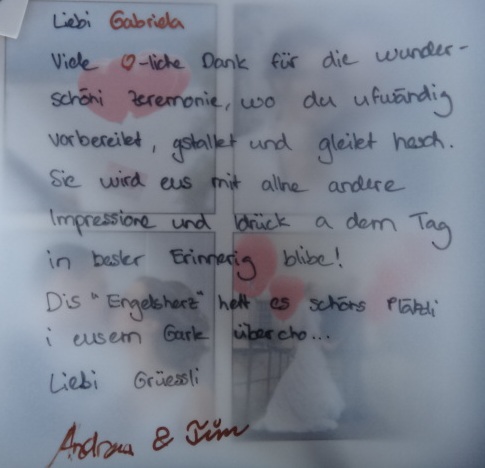 Liebi Gabriela
Viele ♡-liche Dank für die wunder-
schöni Zeremonie, wo du ufwändig
vorbereitet, gstaltet und gleitet hesch.
Sie wird eus mit allne andere
Impressione und Idrück a dem Tag
in bester Erinnerig blibe!
Dis "Engelsherz" hett es schöns Plätzli
i eusem Garte übercho...
Liebi Grüessli
Andrea & Tim